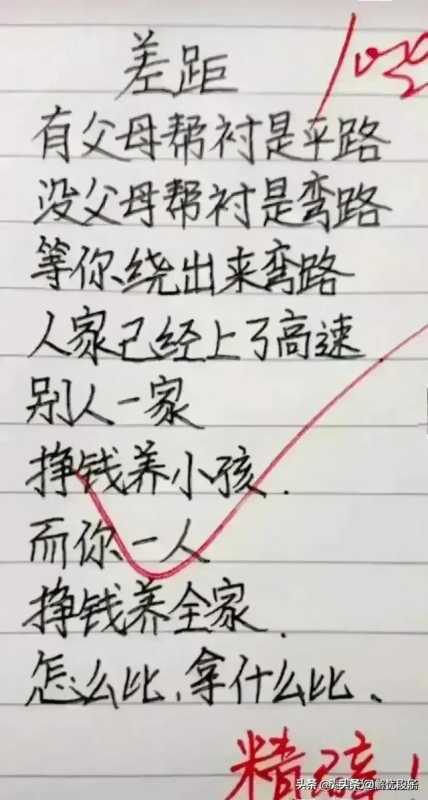 差距
有父母帮衬是平路
没父母帮衬是弯路
等你绕出来弯路
人家已经上了高速
别人一家
挣钱养小孩.
而你一人
挣钱养全家.
怎么比,拿什么比、
精辟!
头条 @解忧段子